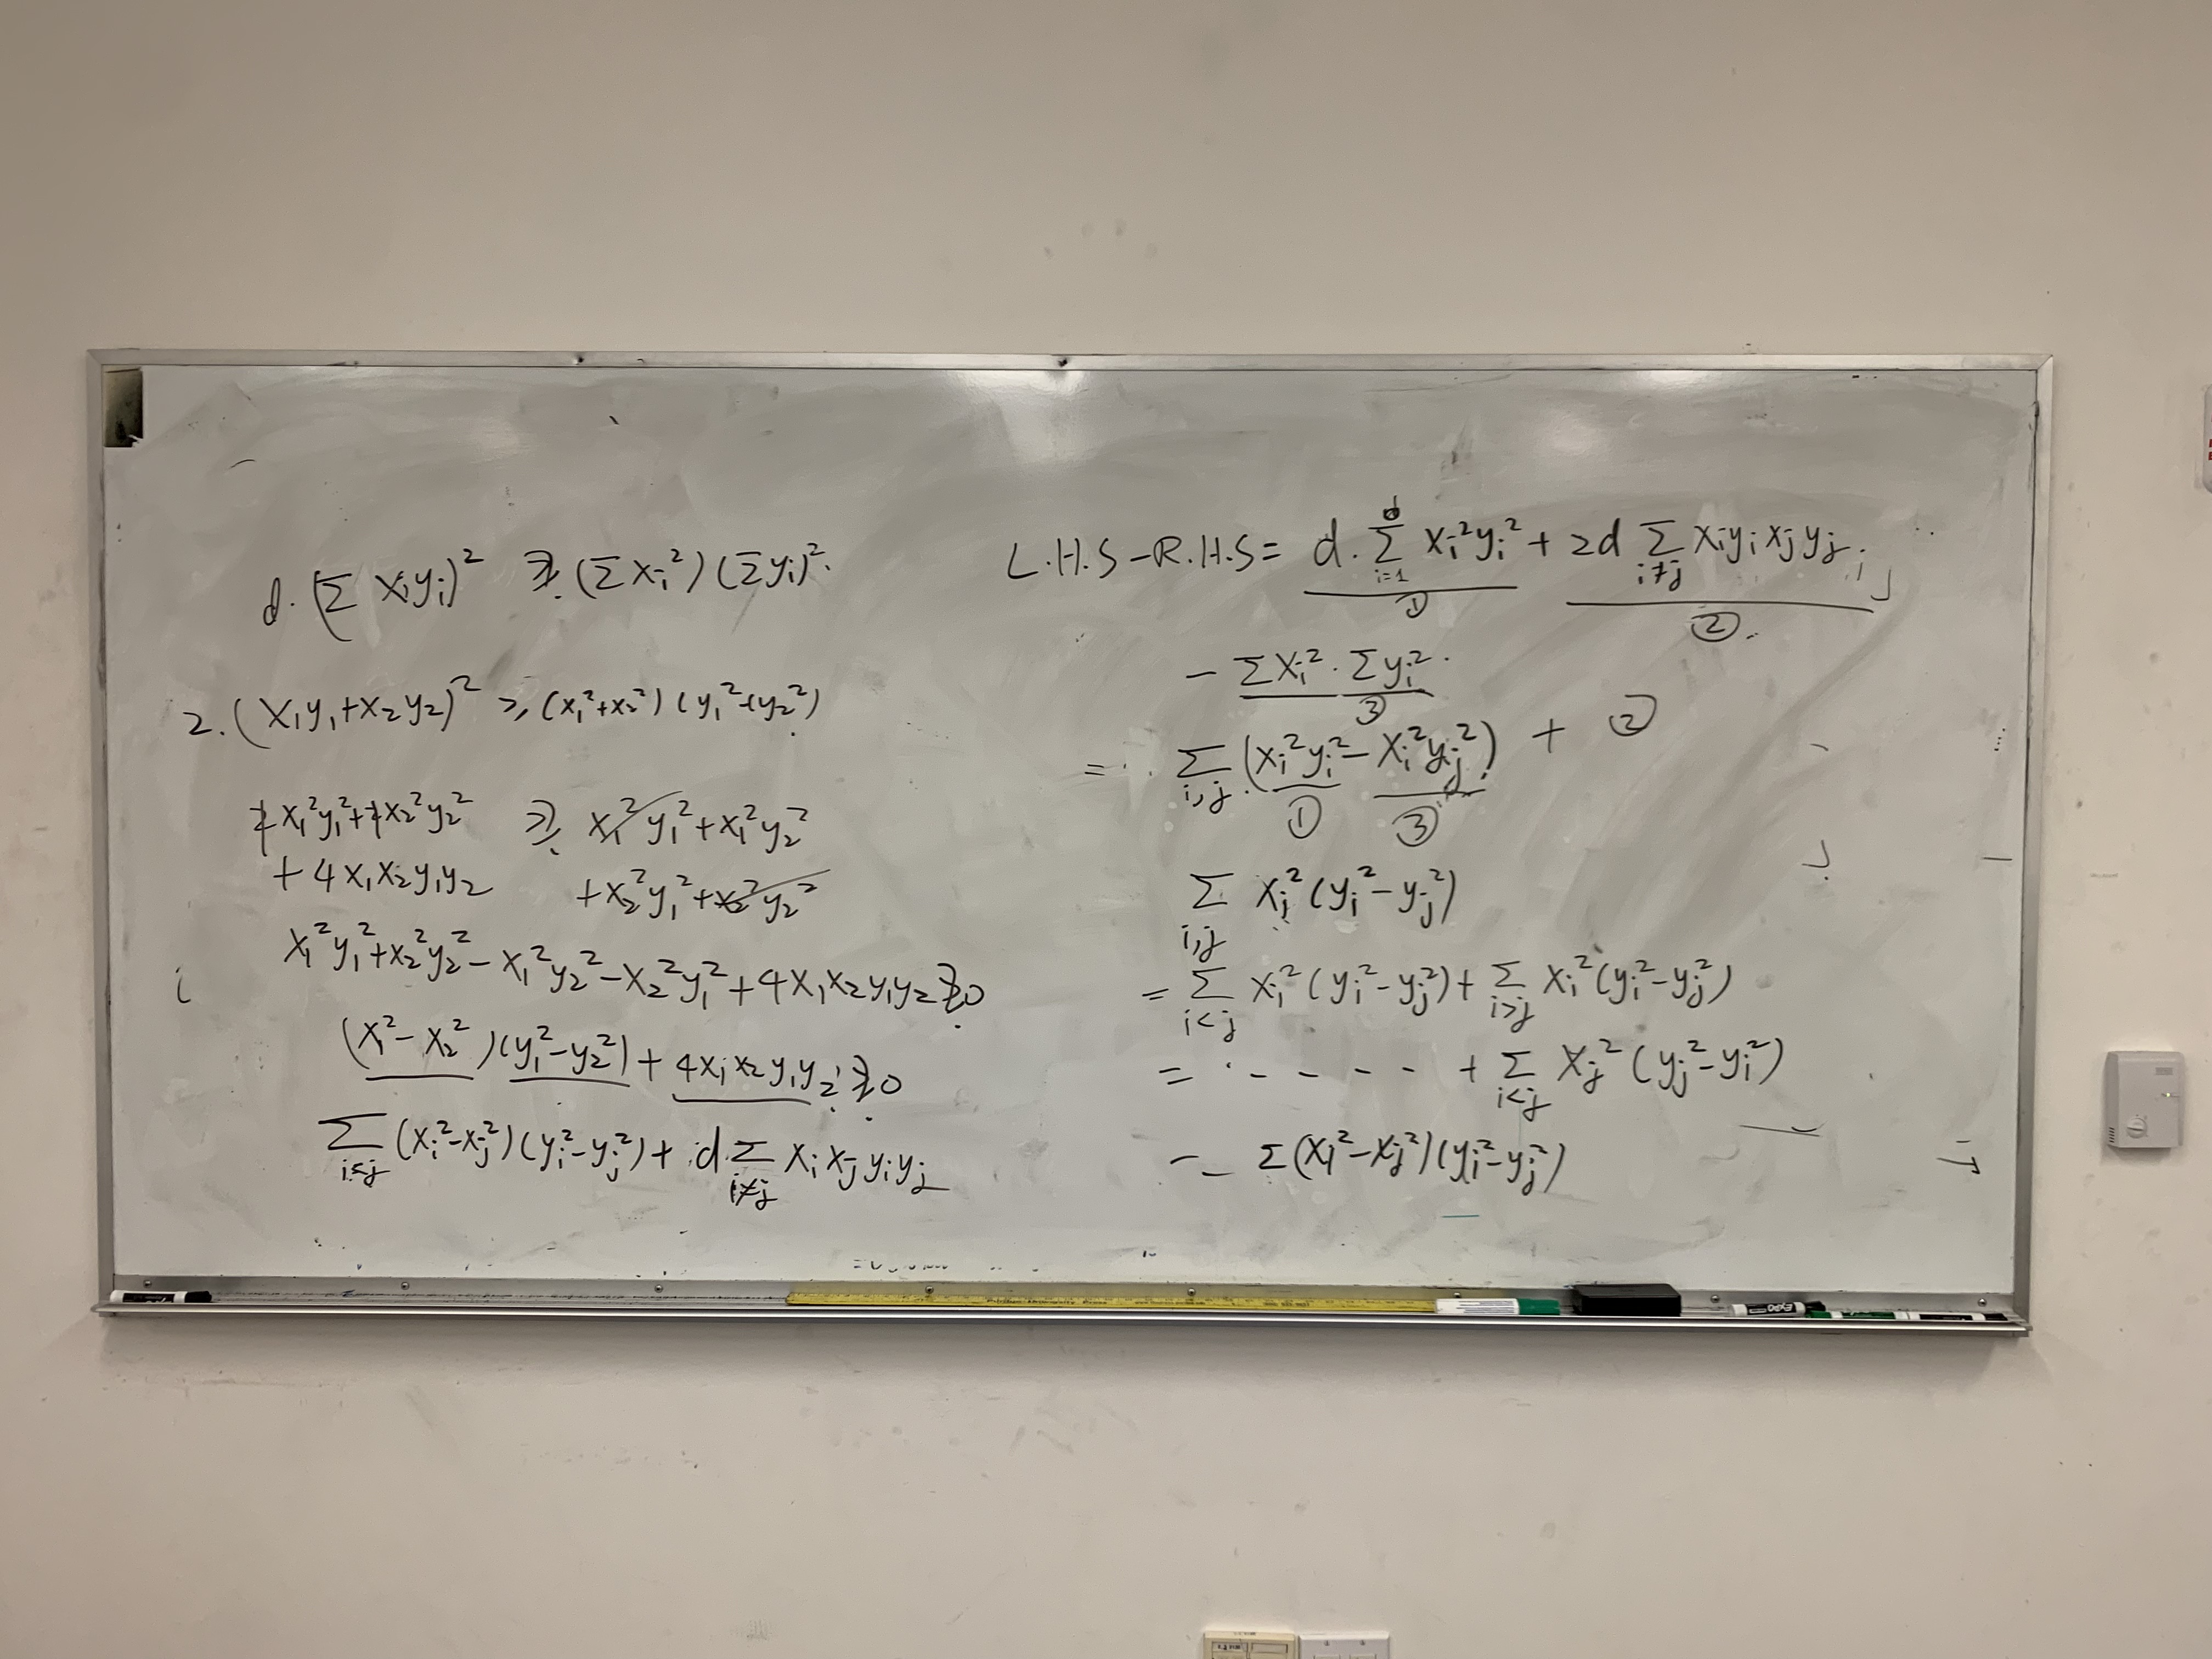 d. (Σ xᵢyᵢ)² ≥ (Σxᵢ²)(Σyᵢ)².
2. (x₁y₁+x₂y₂)² ≥ (x₁²+x₂²)(y₁²+y₂²)
2x₁²y₁²+2x₂²y₂² ≥ x₁²y₁²+x₁²y₂²
+4x₁x₂y₁y₂ +x₂²y₁²+x₂²y₂²
x₁²y₁²+x₂²y₂²−x₁²y₂²−x₂²y₁²+4x₁x₂y₁y₂ ≥0
(x₁²−x₂²)(y₁²−y₂²)+4x₁x₂y₁y₂ ≥0
Σ i<j (xᵢ²−xⱼ²)(yᵢ²−yⱼ²)+ d.Σ i≠j xᵢxⱼyᵢyⱼ
L.H.S−R.H.S= d.Σ i=1 d xᵢ²yᵢ² + 2d Σ i≠j xᵢyᵢxⱼyⱼ
① ②.
− Σxᵢ². Σyᵢ².
③
= Σ i,j (xᵢ²yᵢ²−xᵢ²yⱼ²) + ②
① ③
Σ i,j xᵢ²(yᵢ²−yⱼ²)
= Σ i<j xᵢ²(yᵢ²−yⱼ²)+ Σ i>j xᵢ²(yᵢ²−yⱼ²)
= · - - - - + Σ i<j xⱼ²(yⱼ²−yᵢ²)
Σ(xᵢ²−xⱼ²)(yᵢ²−yⱼ²)
EXPO